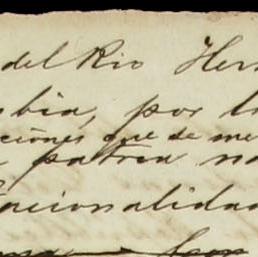 del Rio Her
bia, por l
ciones que de me
patria na
nacionalidad